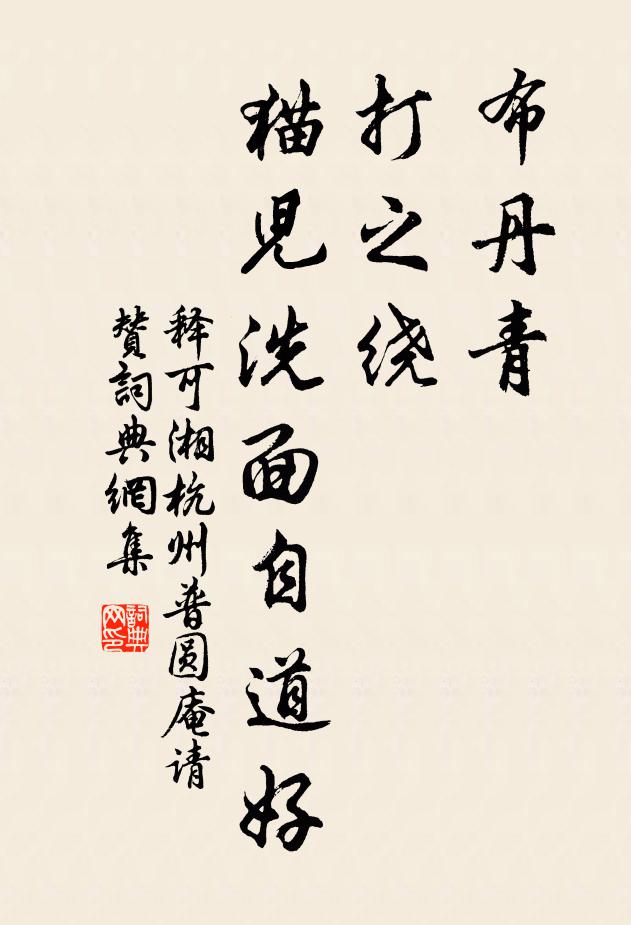 布丹青
打之绕
猫児洗面自道好
释可湘杭州普圆庵请
赞詞典網集
詞典
网印